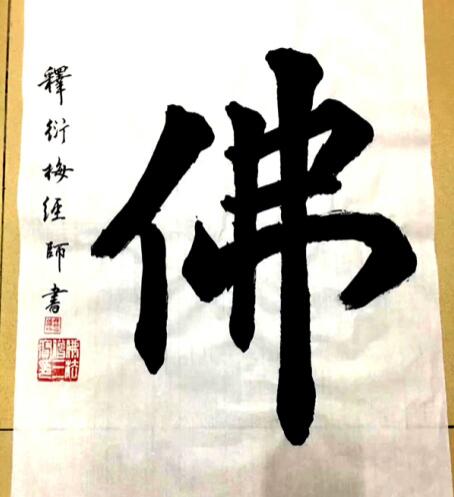 佛
釋衍梅經師書